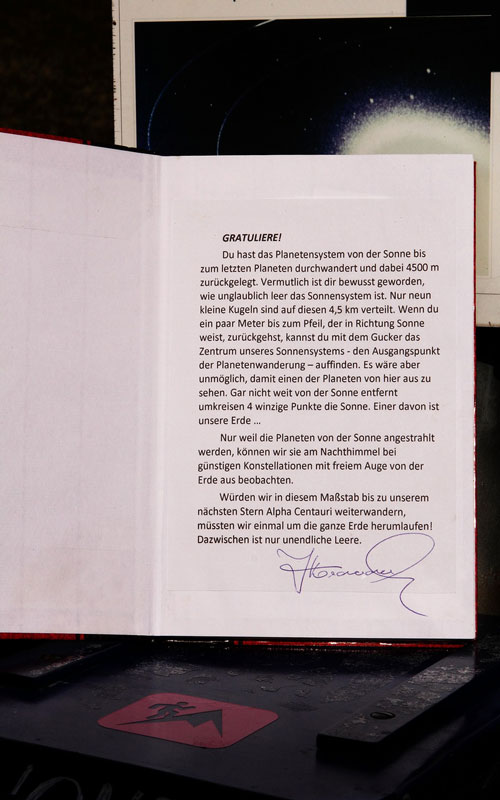 GRATULIERE!
Du hast das Planetensystem von der Sonne bis
zum letzten Planeten durchwandert und dabei 4500 m
zurückgelegt. Vermutlich ist dir bewusst geworden,
wie unglaublich leer das Sonnensystem ist. Nur neun
kleine Kugeln sind auf diesen 4,5 km verteilt. Wenn du
ein paar Meter bis zum Pfeil, der in Richtung Sonne
weist, zurückgehst, kannst du mit dem Gucker das
Zentrum unseres Sonnensystems - den Ausgangspunkt
der Planetenwanderung – auffinden. Es wäre aber
unmöglich, damit einen der Planeten von hier aus zu
sehen. Gar nicht weit von der Sonne entfernt
umkreisen 4 winzige Punkte die Sonne. Einer davon ist
unsere Erde ...
Nur weil die Planeten von der Sonne angestrahlt
werden, können wir sie am Nachthimmel bei
günstigen Konstellationen mit freiem Auge von der
Erde aus beobachten.
Würden wir in diesem Maßstab bis zu unserem
nächsten Stern Alpha Centauri weiterwandern,
müssten wir einmal um die ganze Erde herumlaufen!
Dazwischen ist nur unendliche Leere.